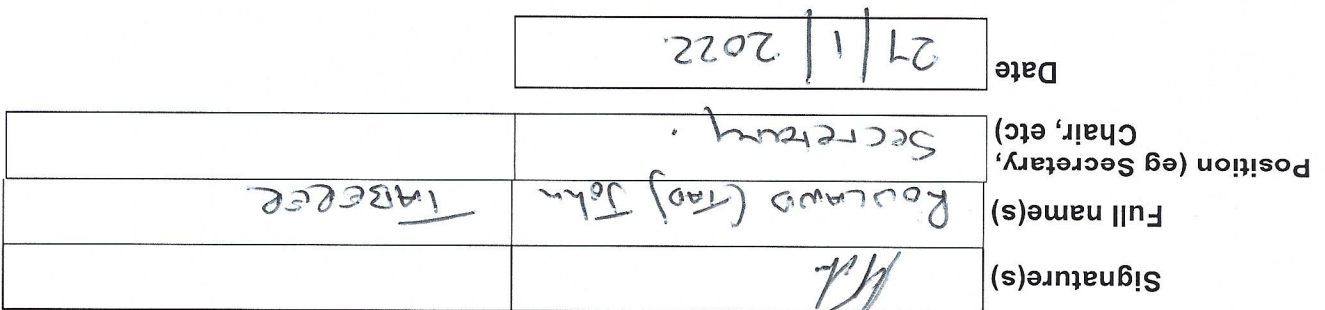 Signature(s)
Full name(s) (TAD) John TABERER
Position (eg Secretary,
Chair, etc) Secretary.
Date 27/1/2022.